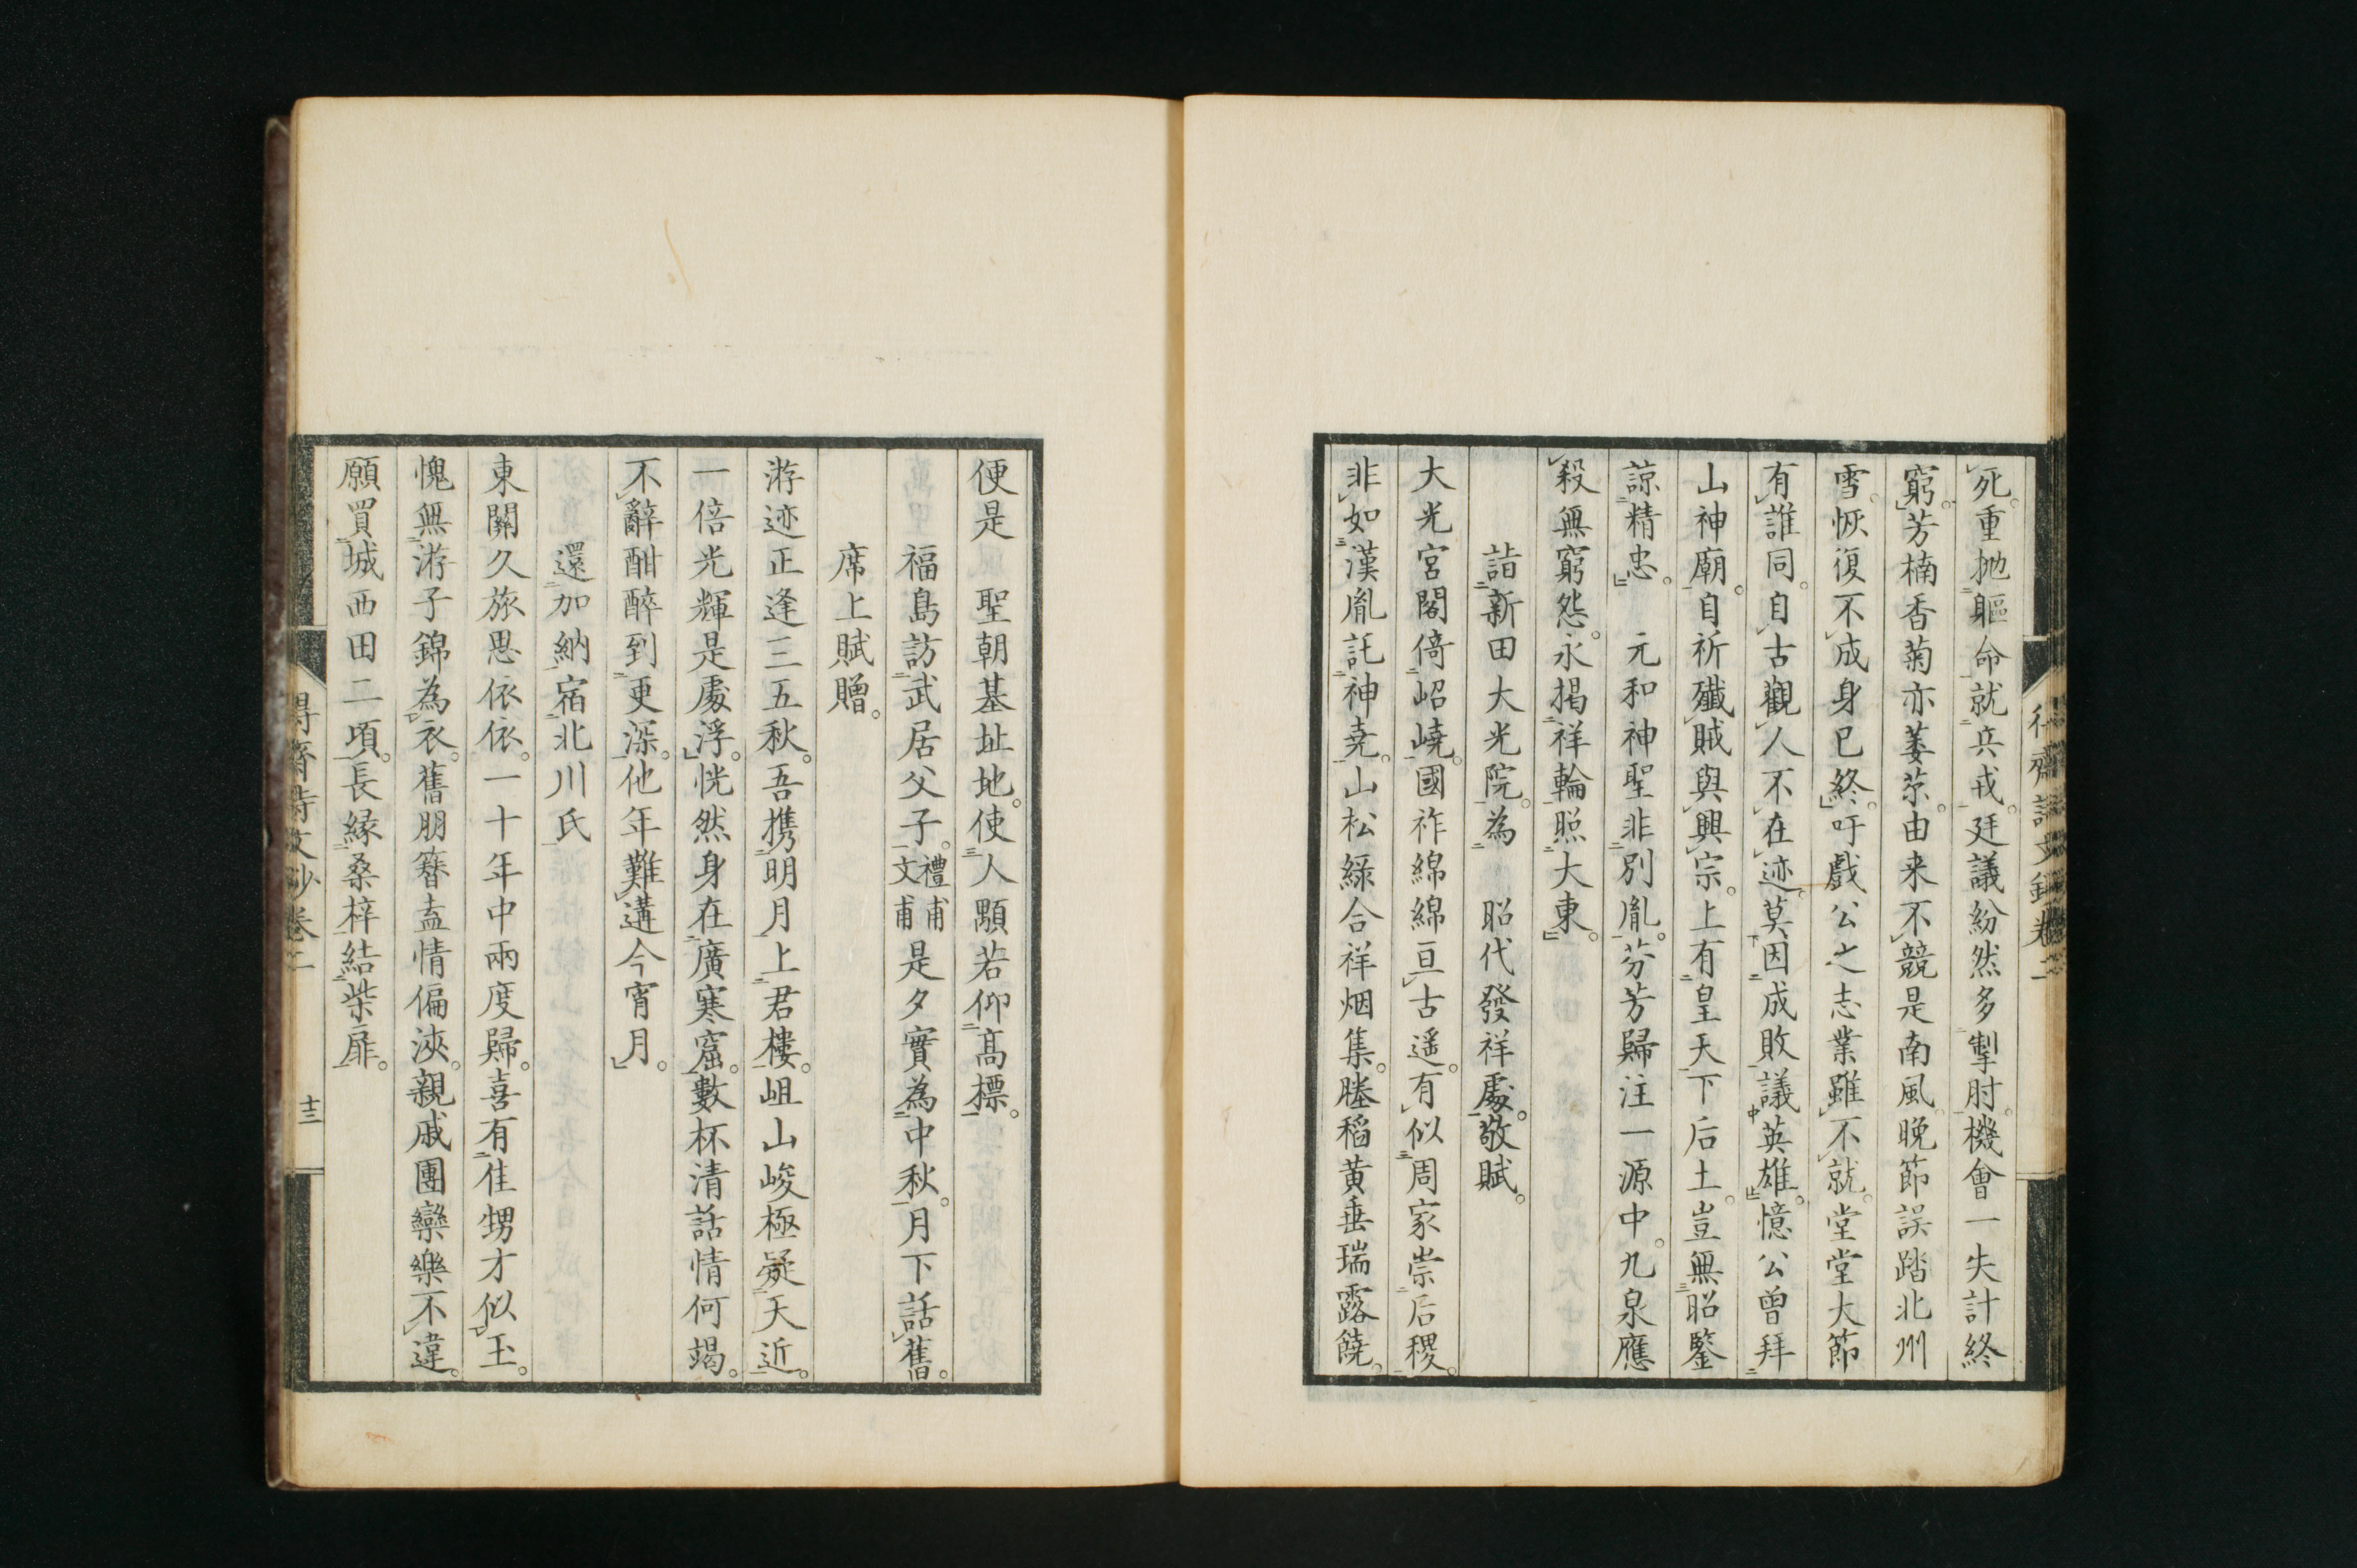 死。重抛軀命就兵戎。廷議紛然多掣肘。機會一失計終
窮。芳楠香菊亦萎苶。由来不競是南風。晚節誤踏北州
雪。恢復不成身已終。吁戲公之志業雖不就。堂堂大節
有誰同。自古觀人不在迹。莫因成敗議英雄。憶公曾拜
山神廟。自祈殱賊與興宗。上有皇天下后土。豈無昭鑒
諒精忠。　元和神聖非別胤。芬芳歸注一源中。九泉應
殺無窮怨。永揭祥輪照大東。
詣新田大光院。為　昭代發祥處。敬賦。
大光宮閣倚岹嶢。國祚綿綿亘古遥。有似周家崇后稷。
非如漢胤託神堯。山松綠合祥烟集。塍稻黄垂瑞露饒。
便是　聖朝基址地。使人顒若仰髙標。
福島訪武居父子。禮甫文甫是夕實為中秋。月下話舊。
席上賦贈。
游迹正逢三五秋。吾携明月上君樓。岨山峻極疑天近。
一倍光輝是處浮。恍然身在廣寒窟。數杯清話情何竭。
不辭酣醉到更深。他年難遘今宵月。
還加納宿北川氏
東關久旅思依依。一十年中兩度歸。喜有佳甥才似玉。
愧無游子錦為衣。舊朋簪盍情偏浹。親戚團欒樂不違。
願買城西田二頃。長緣桑梓結柴扉。
得齋詩文鈔卷二
十三